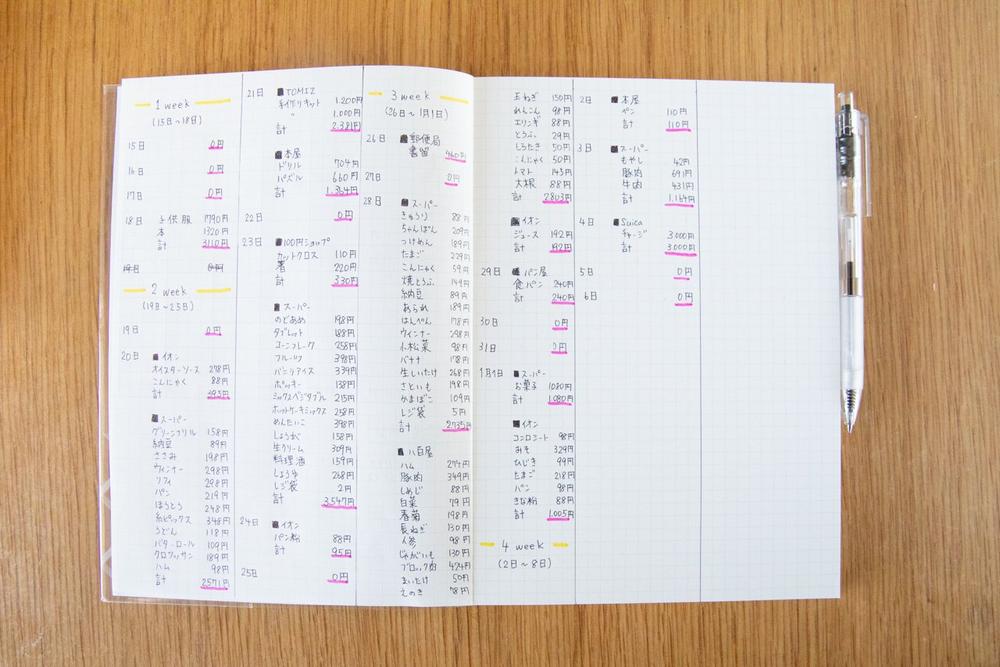 1 week
(15日~18日)
15日 0円
16日 0円
17日 0円
18日 子供服 1790円
本 1320円
計 3110円
19日 0円
2 week
(19日~25日)
19日 0円
20日 イオン
オイスターソース 298円
こんにゃく 88円
計
スーパー
グリーンカール 158円
納豆 89円
ささみ 198円
ウィンナー 298円
ツナ 298円
パン 219円
ほうとう 248円
糸ピックス 348円
うどん 118円
バターロール 109円
クロワッサン 189円
ハム 98円
計 2571円
21日 TOMIZ
手作りキット 1.200円
〃 1.000円
計 2.381円
本屋
ドリル 704円
パズル 660円
計 1.364円
22日 0円
23日 100円ショップ
カットクロス 110円
箸 220円
計 330円
スーパー
のどあめ 198円
タブレット 188円
コーンフレーク 258円
フルーツ 398円
バニラアイス 339円
ポッキー 138円
ミックスベジタブル 215円
ホットケーキミックス 258円
めんたいこ 398円
しょうが 158円
生クリーム 309円
料理酒 159円
しょうゆ 268円
レジ袋 2円
計 3.547円
24日 イオン
パン粉 88円
計 95円
25日 0円
3 week
(26日~1月1日)
26日 郵便局
書留 460円
27日 0円
28日 スーパー
きゅうり 88円
ちゃんぽん 209円
つけめん 189円
たまご 229円
こんにゃく 59円
焼とうふ 149円
納豆 89円
あられ 189円
はんぺん 178円
ウィンナー 298円
小松菜 98円
バナナ 178円
生しいたけ 268円
さといも 198円
かまぼこ 109円
レジ袋 5円
計 2735円
八百屋
ハム 274円
豚肉 349円
しめじ 88円
白菜 79円
春菊 198円
長ねぎ 130円
人参 98円
じゃがいも 130円
ブロック肉 424円
まいたけ 50円
えのき 78円
玉ねぎ 150円
れんこん 98円
エリンギ 88円
とうふ 29円
しらたき 50円
こんにゃく 50円
トマト 145円
大根 88円
計 2803円
イオン
ジュース 192円
計 192円
29日 パン屋
食パン 240円
計 240円
30日 0円
31日 0円
1月1日 スーパー
お菓子 1080円
計 1.080円
イオン
コンソメシート 98円
みそ 329円
ひじき 99円
たまご 218円
パン 98円
きな粉 88円
計 1.005円
4 week
(2日~8日)
2日 本屋
ペン 110円
計 110円
3日 スーパー
もやし 42円
豚肉 691円
牛肉 431円
計 1.164円
4日 Suica
チャージ 3.000円
計 3.000円
5日 0円
6日 0円